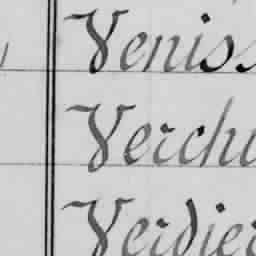 Veniss
Verchi
Verdier